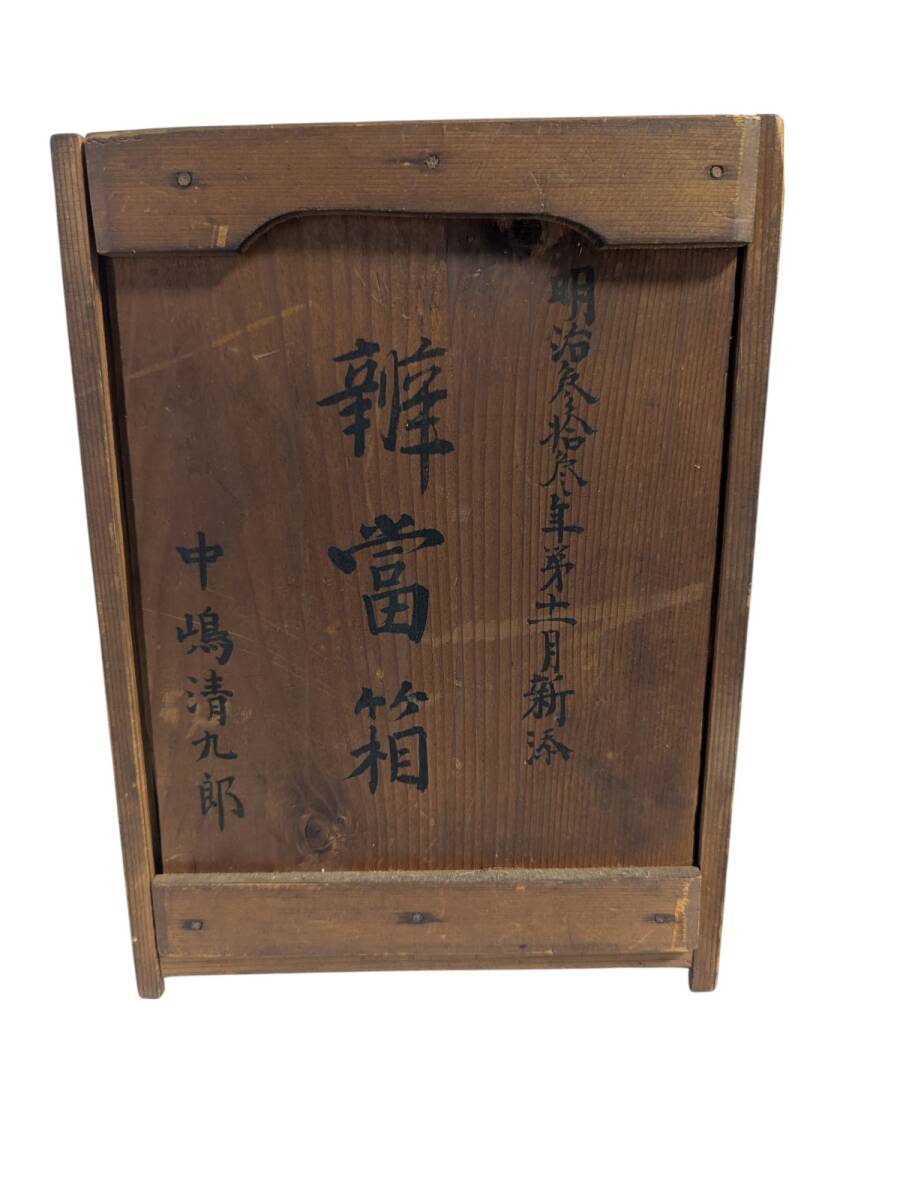 明治参拾参年第十一月新添
辨當箱
中嶋清九郎